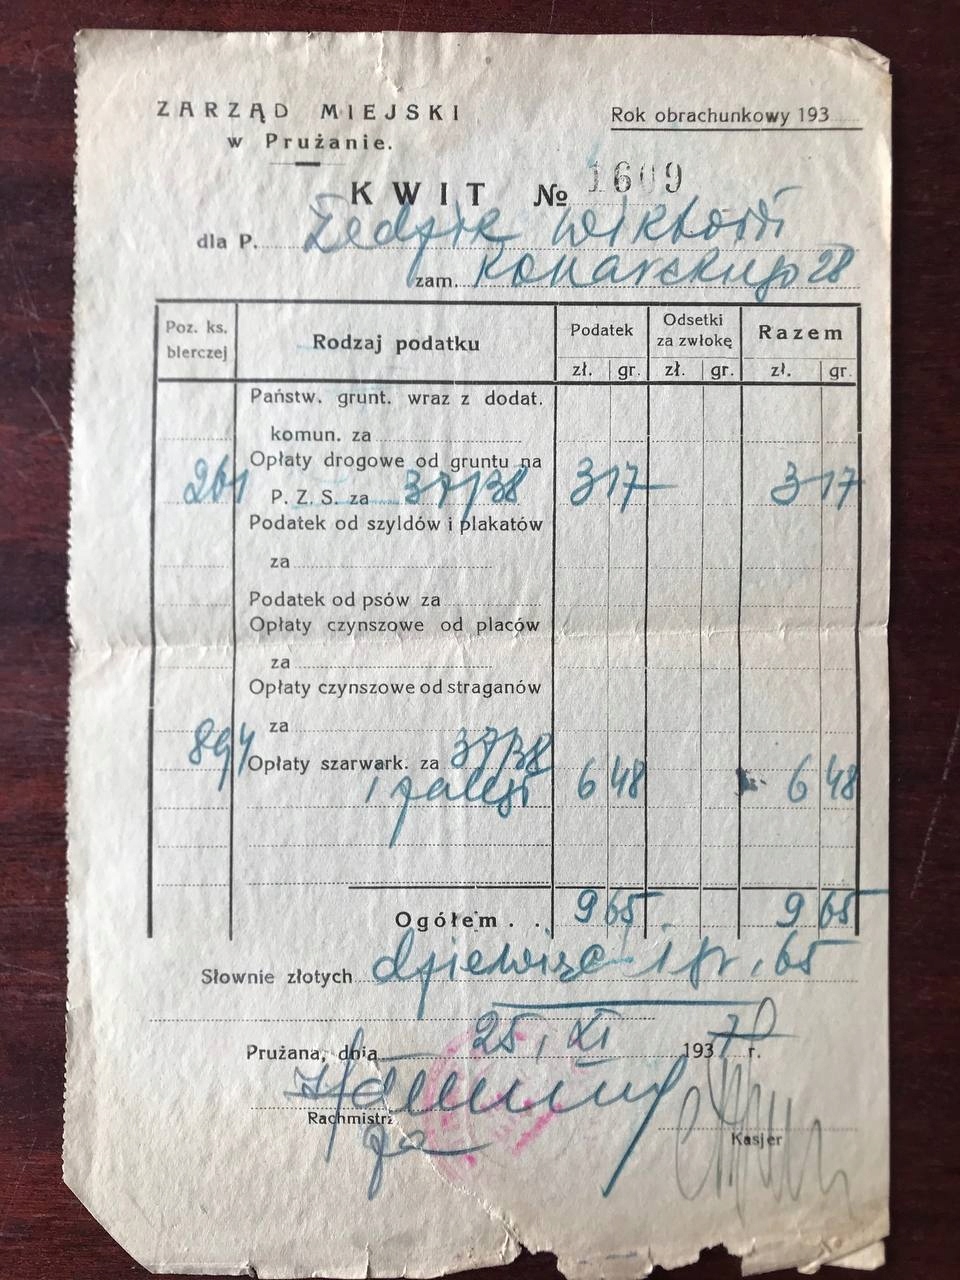 ZARZĄD MIEJSKI
w Prużanie.
Rok obrachunkowy 193
KWIT № 1609
dla P.
zam. Konarskiego 28
Poz. ks. bierczej
Rodzaj podatku
Podatek
Odsetki za zwłokę
Razem
zł. gr. zł. gr. zł. gr.
Państw. grunt. wraz z dodat.
komun. za
Opłaty drogowe od gruntu na
261 P. Z. S. za 37/38 3 17 3 17
Podatek od szyldów i plakatów
za
Podatek od psów za
Opłaty czynszowe od placów
za
Opłaty czynszowe od straganów
za
894 Opłaty szarwark. za 37/38
i zaległ 6 48 6 48
Ogółem . . 9 65 9 65
Słownie złotych dziewięć i gr. 65
Prużana, dnia 25. XI 1937 r.
Rachmistrz
Kasjer